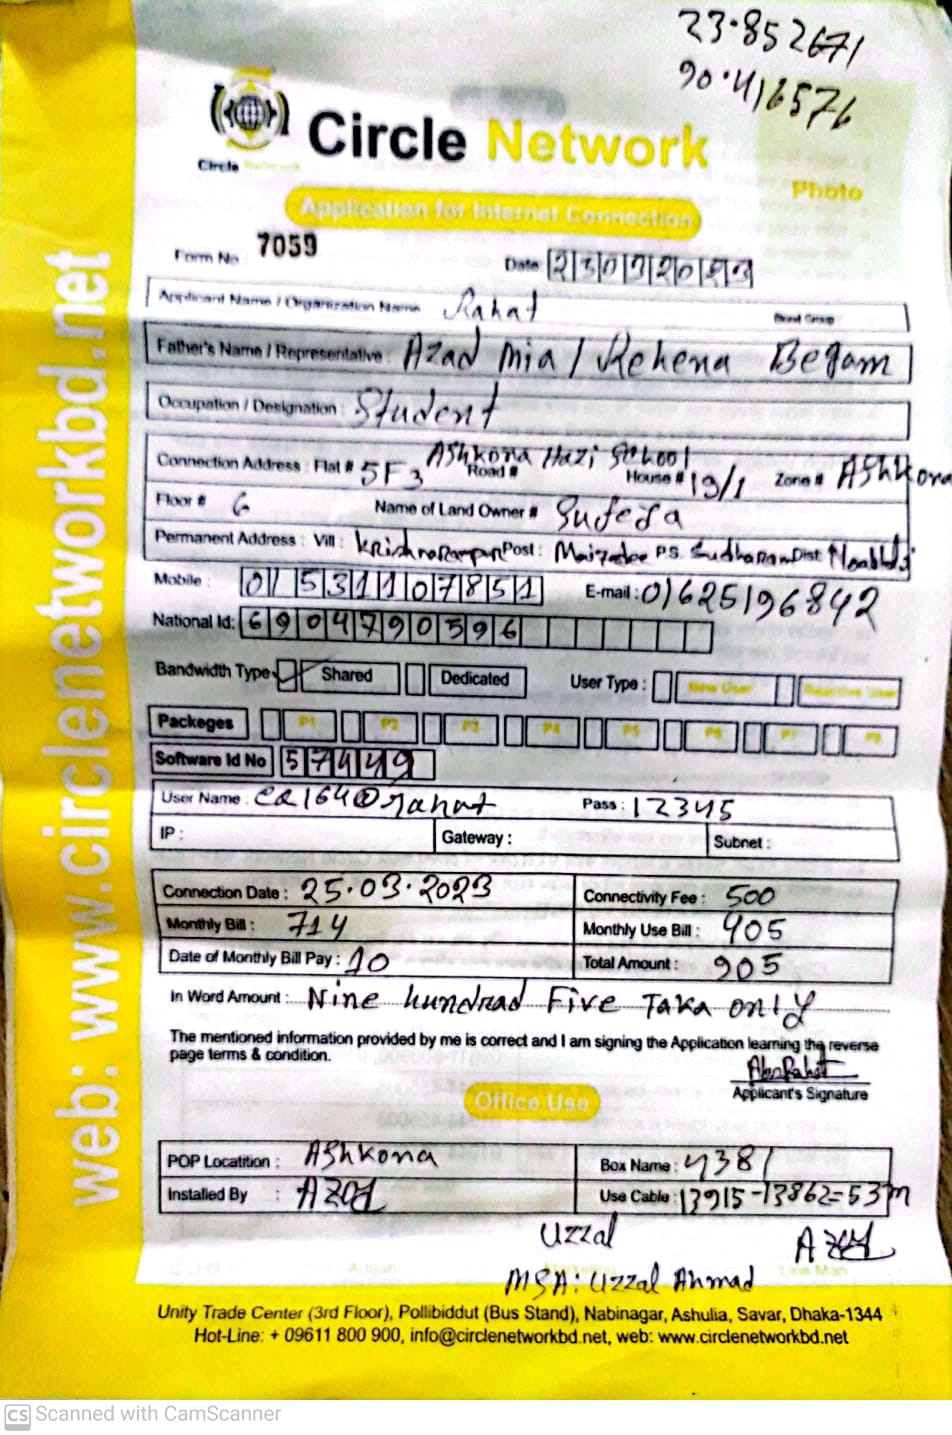 23.852671
90.416576
Circle Network
Circle Network
Photo
Application for Internet Connection
Form No 7059
Date: 23072023
Applicant Name / Organization Name Rahat Blood Group
Father's Name / Representative: Azad mia / Rehena Begam
Occupation / Designation: Student
Ashkona Hazi School
Connection Address: Flat # 5F3 Road # House # 19/1 Zone # Ashkona
Floor # 6 Name of Land Owner # Sufeja
Permanent Address: Vill: Krishnarampur Post: Maizdee P.S. Sudharam Dist:
Mobile: 01531107851 E-mail: 01625196842
National Id: 6904790596
Bandwidth Type Shared Dedicated User Type: New User
Packeges P1 P2 P3 P4 P5 P6 P7
Software Id No 57449
User Name: CR164@rahat Pass: 12345
IP: Gateway: Subnet:
Connection Date: 25.03.2023 Connectivity Fee: 500
Monthly Bill: 714 Monthly Use Bill: 405
Date of Monthly Bill Pay: 10 Total Amount: 905
In Word Amount: Nine hundrad Five Taka only
The mentioned information provided by me is correct and I am signing the Application learning the reverse
page terms & condition.
Applicant's Signature
Office Use
POP Locatition: Ashkona Box Name: 4381
Installed By: Azad Use Cable: 13915-13862=53m
Uzzal Azad
Line Man
MSA: Uzzal Ahmad
Unity Trade Center (3rd Floor), Pollibiddut (Bus Stand), Nabinagar, Ashulia, Savar, Dhaka-1344
Hot-Line: + 09611 800 900, info@circlenetworkbd.net, web: www.circlenetworkbd.net
web: www.circlenetworkbd.net
CS Scanned with CamScanner